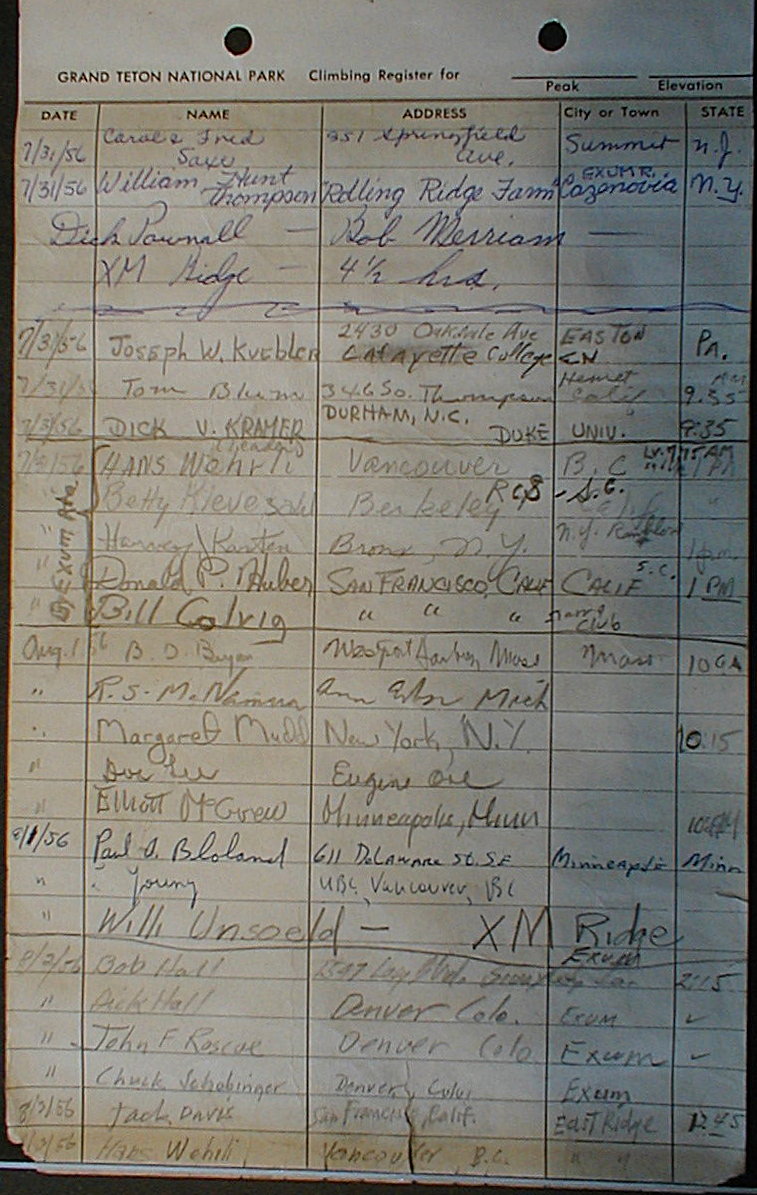 GRAND TETON NATIONAL PARK Climbing Register for
Peak Elevation
DATE NAME ADDRESS City or Town STATE
7/31/56 Carol & Fred Saxe 251 Springfield Ave. Summit n.J.
EXUM R.
7/31/56 William Hunt Thompson "Rolling Ridge Farm" Cazenovia N.Y.
Dick Pownall — Bob Merriam —
XM Ridge — 4½ hrs.
7/31/56 JOSEPH W. KUEBLER 2430 Oakdale Ave Lafayette College EASTON PA.
7/31/5 Tom Blum 346 So. Thompson Hemet Calif 9:35
7/31/56 DICK V. KRAMER DURHAM, N.C. DUKE UNIV. 9:35
(Leader)
HANS Wehrli Vancouver B.C
Betty Berkeley
EXUM
" Harvey Karten Bronx, N.Y. N.Y.
S.C.
" Donald P. Huber SAN FRANCISCO, CALIF CALIF 1 PM
" Bill Colvig " " " Club
Aug. 1 56 B. D. Mass Mass. 10
" R. S. McNamara Ann Arbor Mich
" Margaret Mudd New York, N.Y. 10:15
" Eugene Ore
" Elliott McGrew Minneapolis, Minn
8/1/56 Paul A. Bloland 611 DeLaware St. S.E Minneapolis Minn
" Young UBC, Vancouver, BC
" Willi Unsoeld — XM Ridge
8/2/56 Bob Hall Exum 2:15
" Dick Hall Denver Colo. Exum ✓
" John F Roscoe Denver Colo Exum ✓
" Chuck Denver, Colo. Exum
8/2/56 Jack DAVIS San Francisco, Calif. East Ridge 12:45
Hans Wehrli Vancouver, B.C. " "